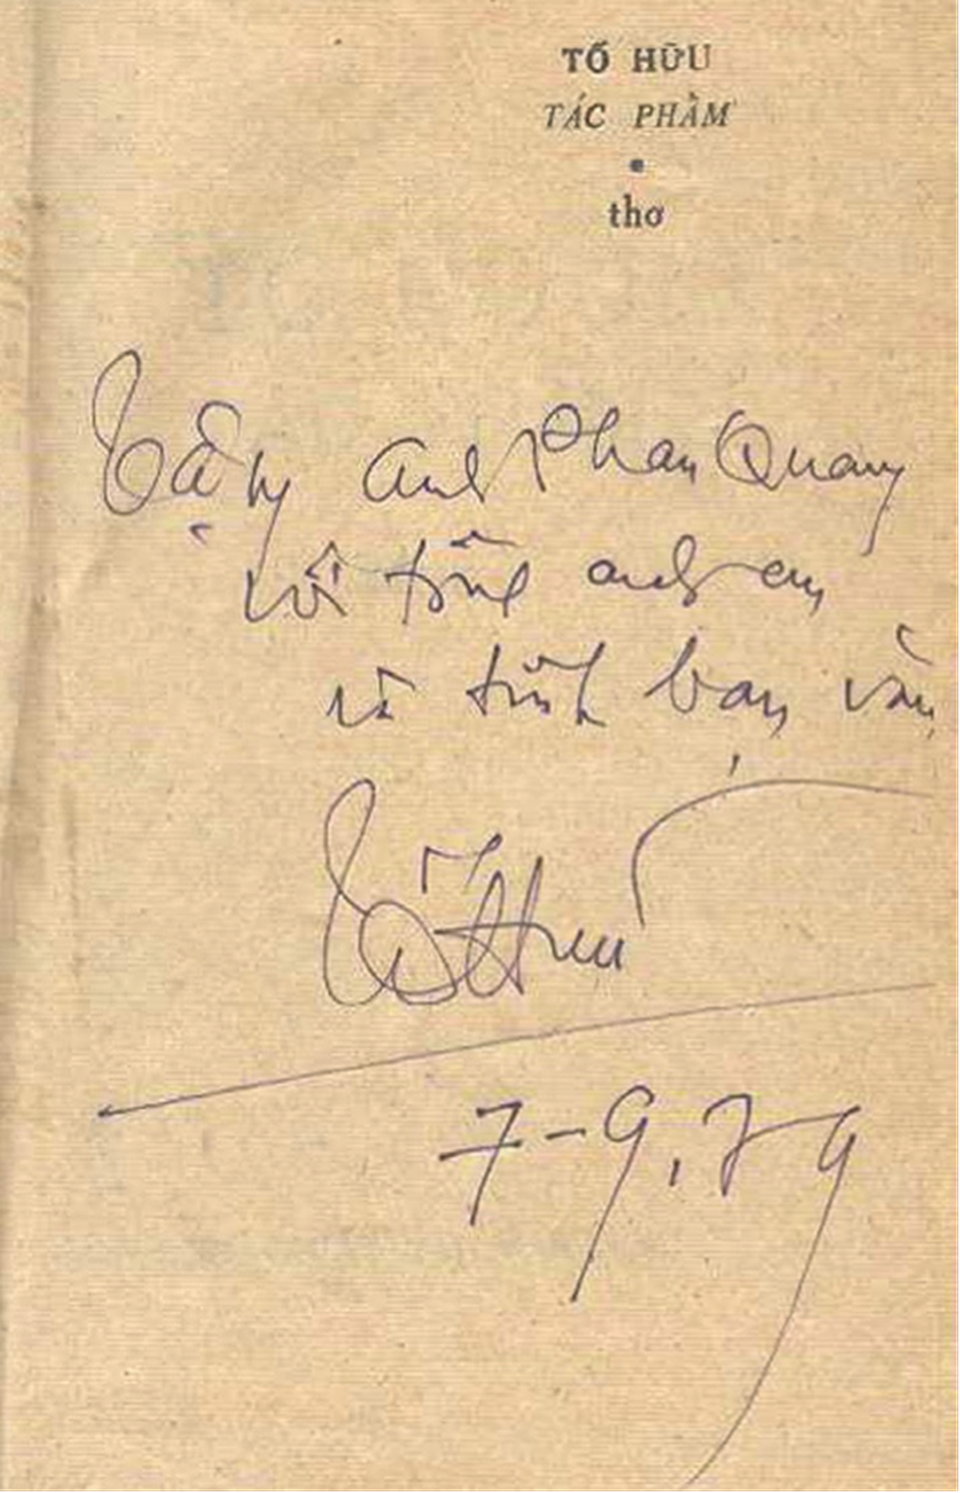 TỐ HỮU
TÁC PHẨM
thơ
Tặng anh Phan Quang
với tình anh em
và tình bạn văn
Tố Hữu
7-9.79